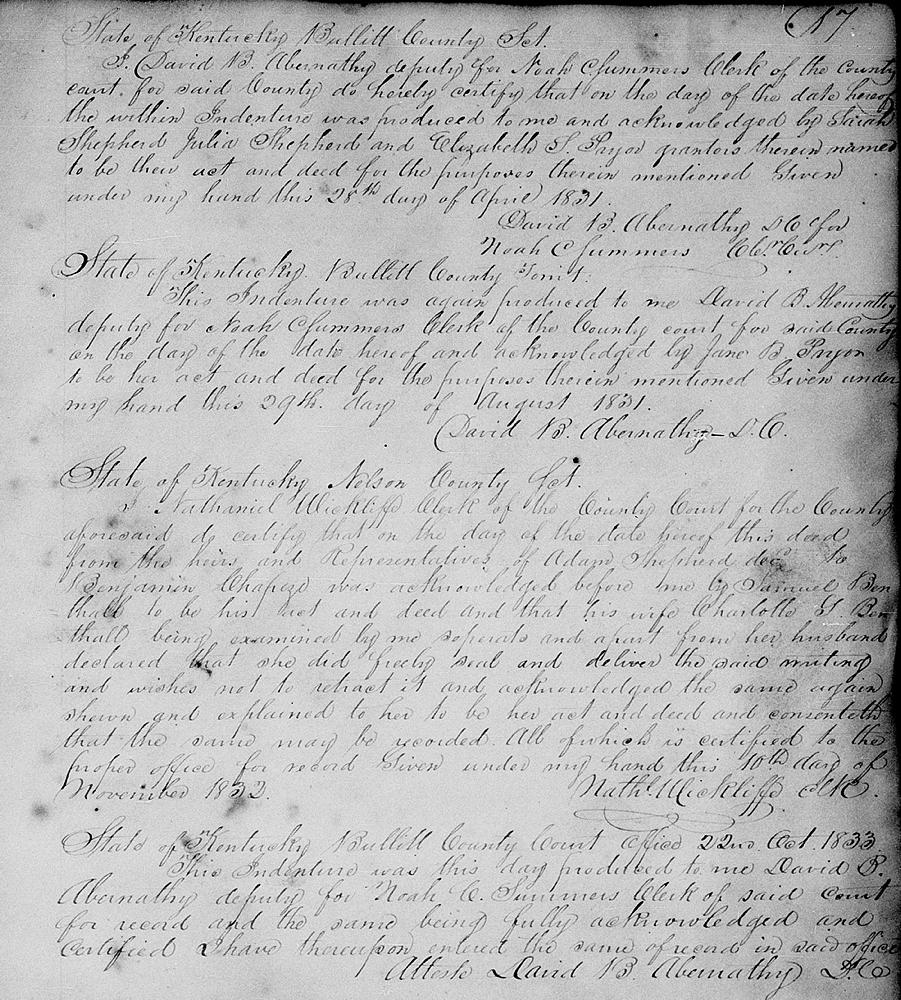 17
State of Kentucky Bullitt County Sct.
I David B. Abernathy deputy for Noah C Summers Clerk of the County
court for said County do hereby certify that on the day of the date hereof
the within Indenture was produced to me and acknowledged by Sarah
Shepherd Julia Shepherd and Elizabeth S. Pryor grantors therein named
to be their act and deed for the purposes therein mentioned Given
under my hand this 28th day of April 1831.
David B. Abernathy D C for
Noah C Summers
State of Kentucky Bullitt County Towit:
This Indenture was again produced to me David B. Abernathy
deputy for Noah C Summers Clerk of the County court for said County
on the day of the date hereof and acknowledged by Jane B Pryor
to be her act and deed for the purposes therein mentioned Given under
my hand this 29th. day of August 1831.
David B. Abernathy D.C.
State of Kentucky Nelson County Sct.
I Nathaniel Wickliffe Clerk of the County Court for the County
aforesaid do certify that on the day of the date hereof this deed
from the heirs and Representatives of Adam Shepherd decd. to
Benjamin Chapeze was acknowledged before me by Samuel Ben
thall to be his act and deed and that his wife Charlotte T Ben
thall being examined by me seperate and apart from her husband
declared that she did freely seal and deliver the said writing
and wishes not to retract it and acknowledged the same again
shewn and explained to her to be her act and deed and consenteth
that the same may be recorded. All of which is certified to the
proper office for record Given under my hand this 10th day of
November 1832. Nathl. Wickliffe clk.
State of Kentucky Bullitt County Court office 22nd. Oct. 1833
This Indenture was this day produced to me David B.
Abernathy deputy for Noah C. Summers Clerk of said court
for record and the same being fully acknowledged and
Certified I have thereupon entered the same of record in said office
Atteste David B. Abernathy D.C.